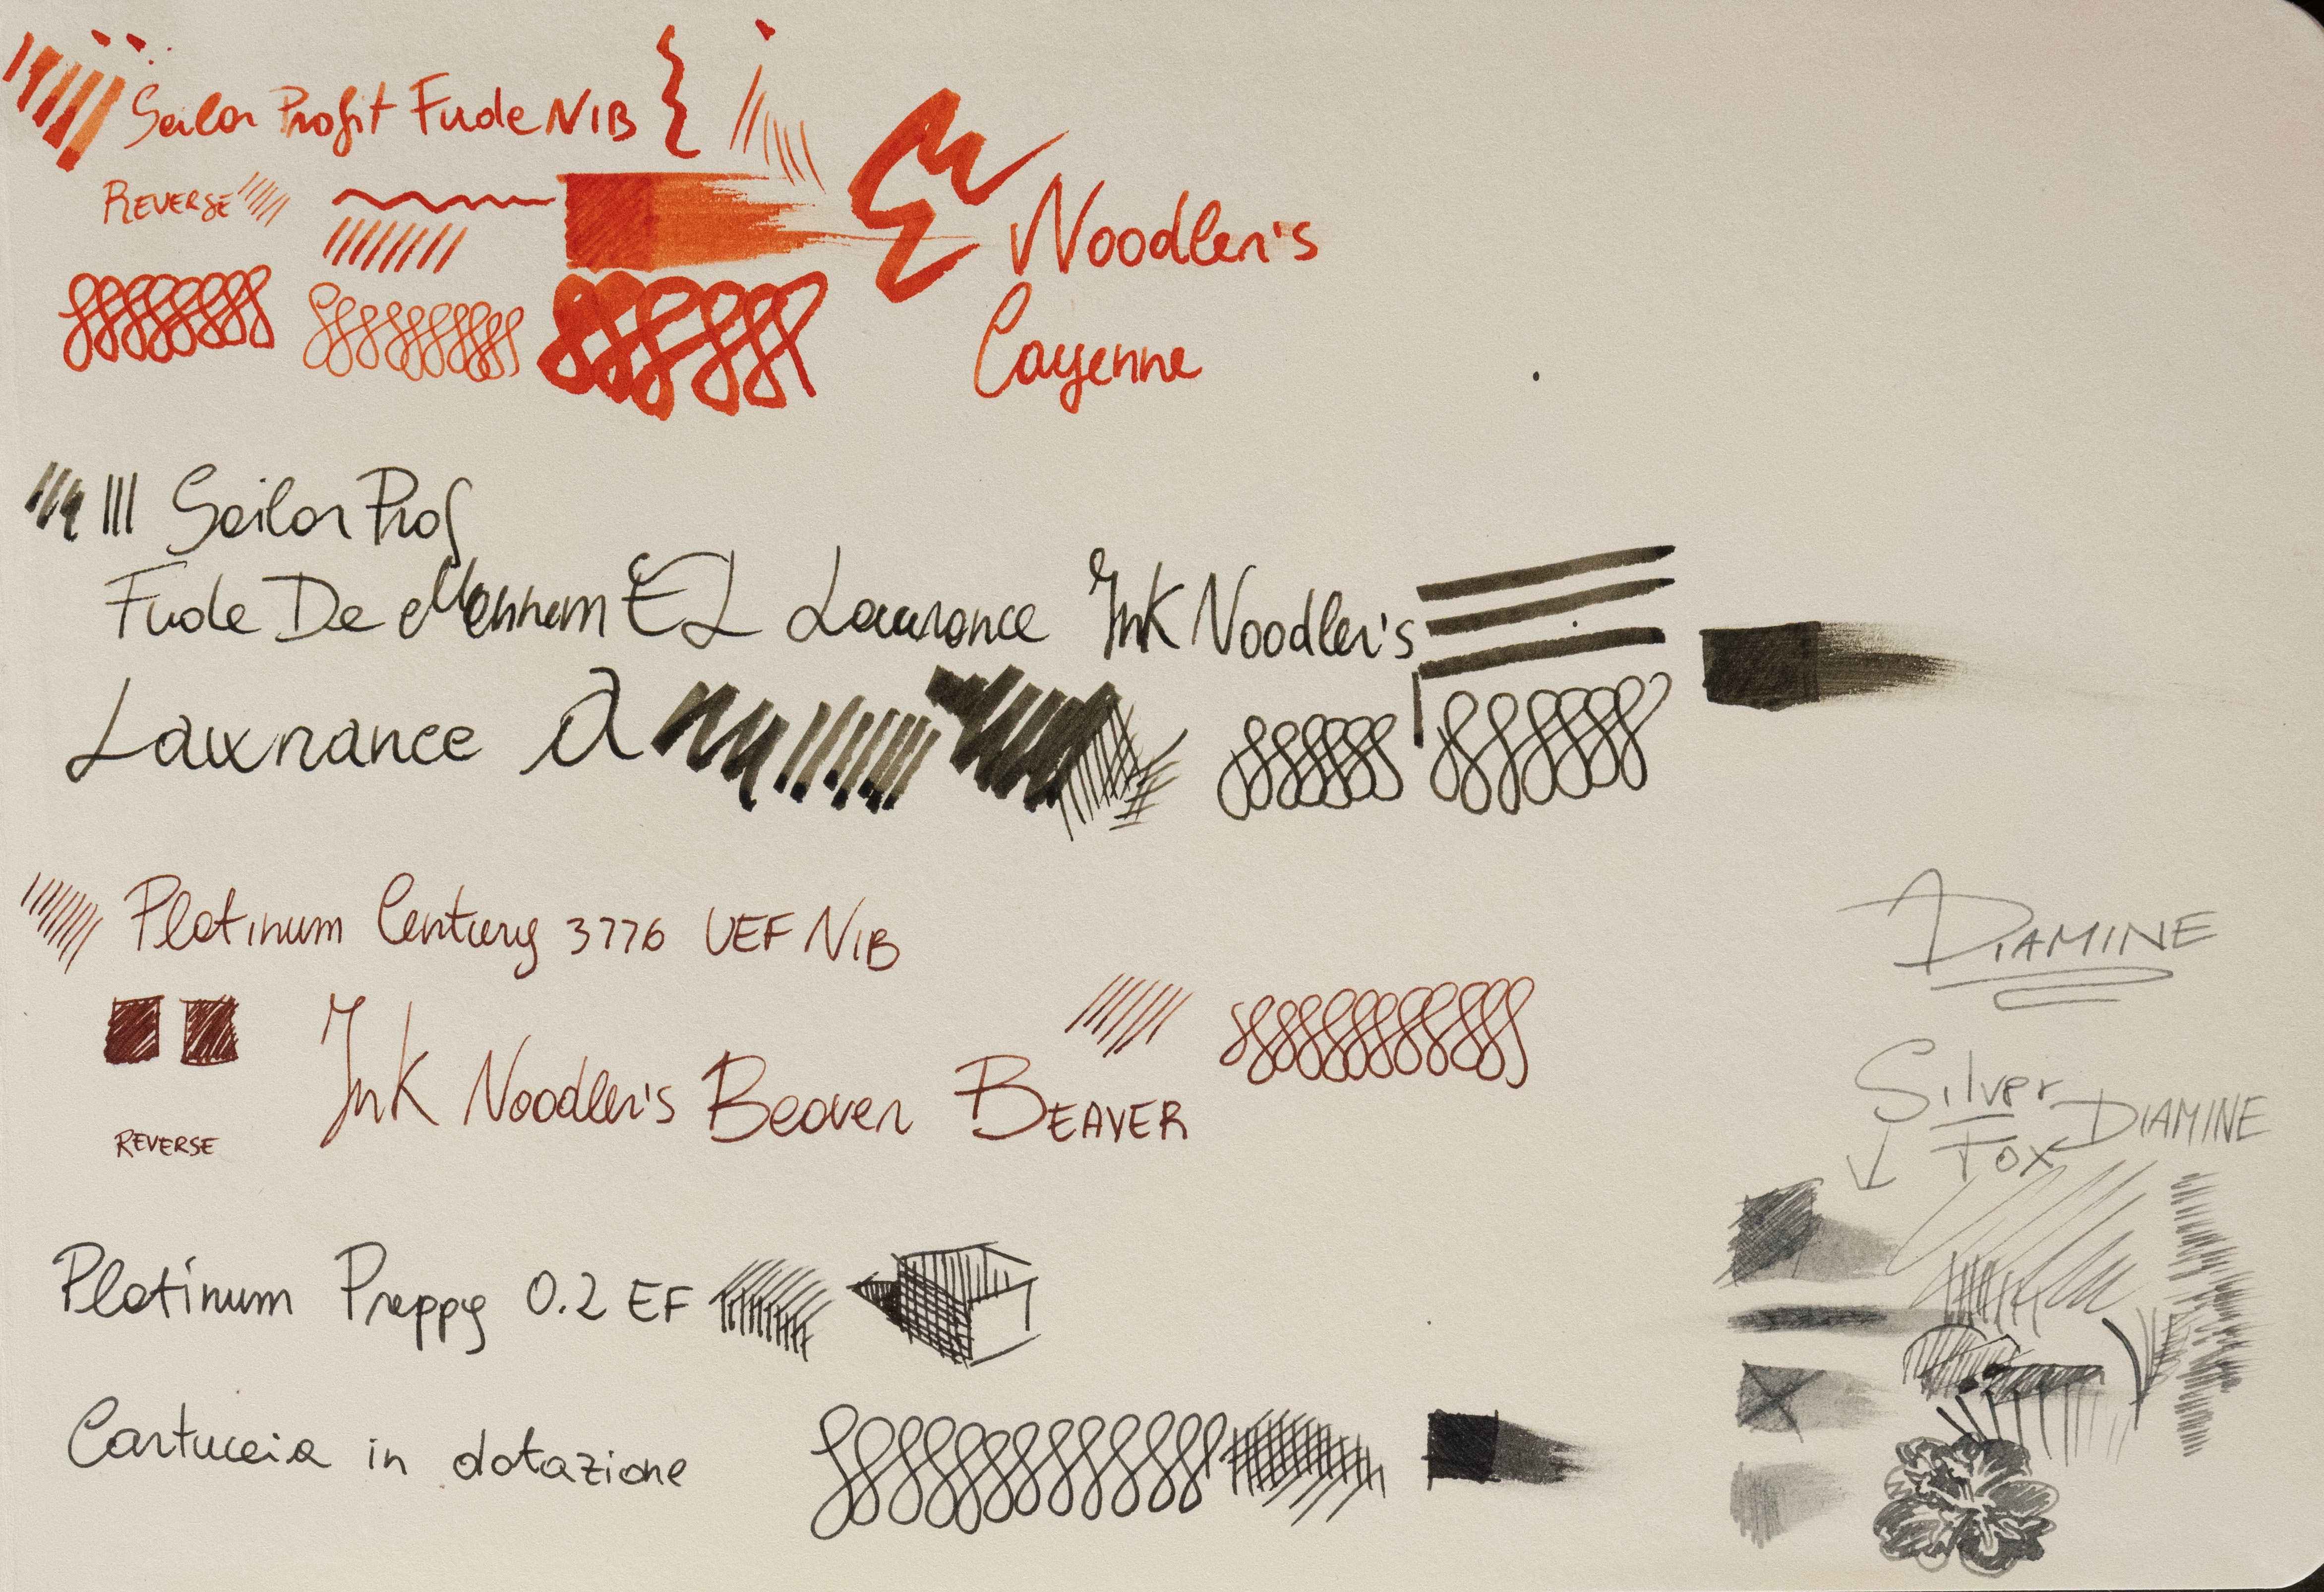 Sailor Profit Fude NIB
REVERSE
Noodler's
Cayenne
Sailor Prof
Fude De Mannem EL Lawrance Ink Noodler's
Lawxrance a
Platinum Century 3776 UEF NIB
Ink Noodler's Beaver BEAVER
REVERSE
Platinum Preppy 0.2 EF
Cartuccia in dotazione
DIAMINE
Silver
Fox DIAMINE